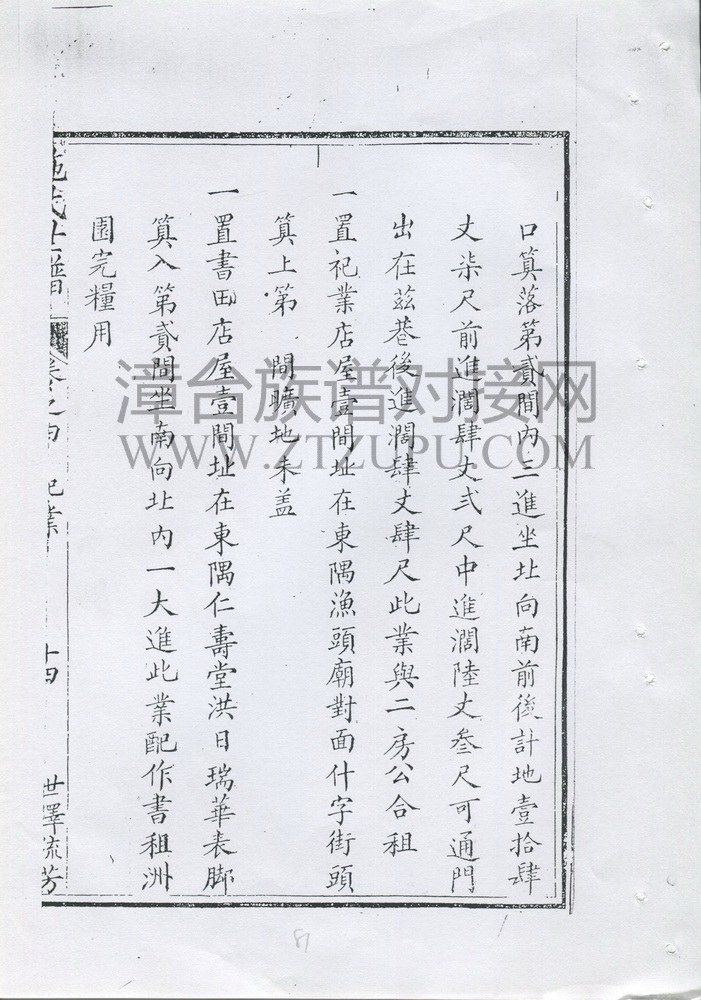 口算落第貳間內三進坐北向南前後計地壹拾肆
丈柒尺前進濶肆丈弍尺中進濶陸丈叁尺可通門
出在茲巷後進濶肆丈肆尺此業與二房公合租
一置祀業店屋壹間址在東隅漁頭廟對面什字街頭
算上第 間曠地未盖
一置書田店屋壹間址在東隅仁壽堂洪日瑞華表脚
算入第貳間坐南向北內一大進此業配作書租洲
園完糧用
施氏世譜 卷之四 祀業 十四 世澤流芳
漳台族谱对接网
WWW.ZTZUPU.COM
81